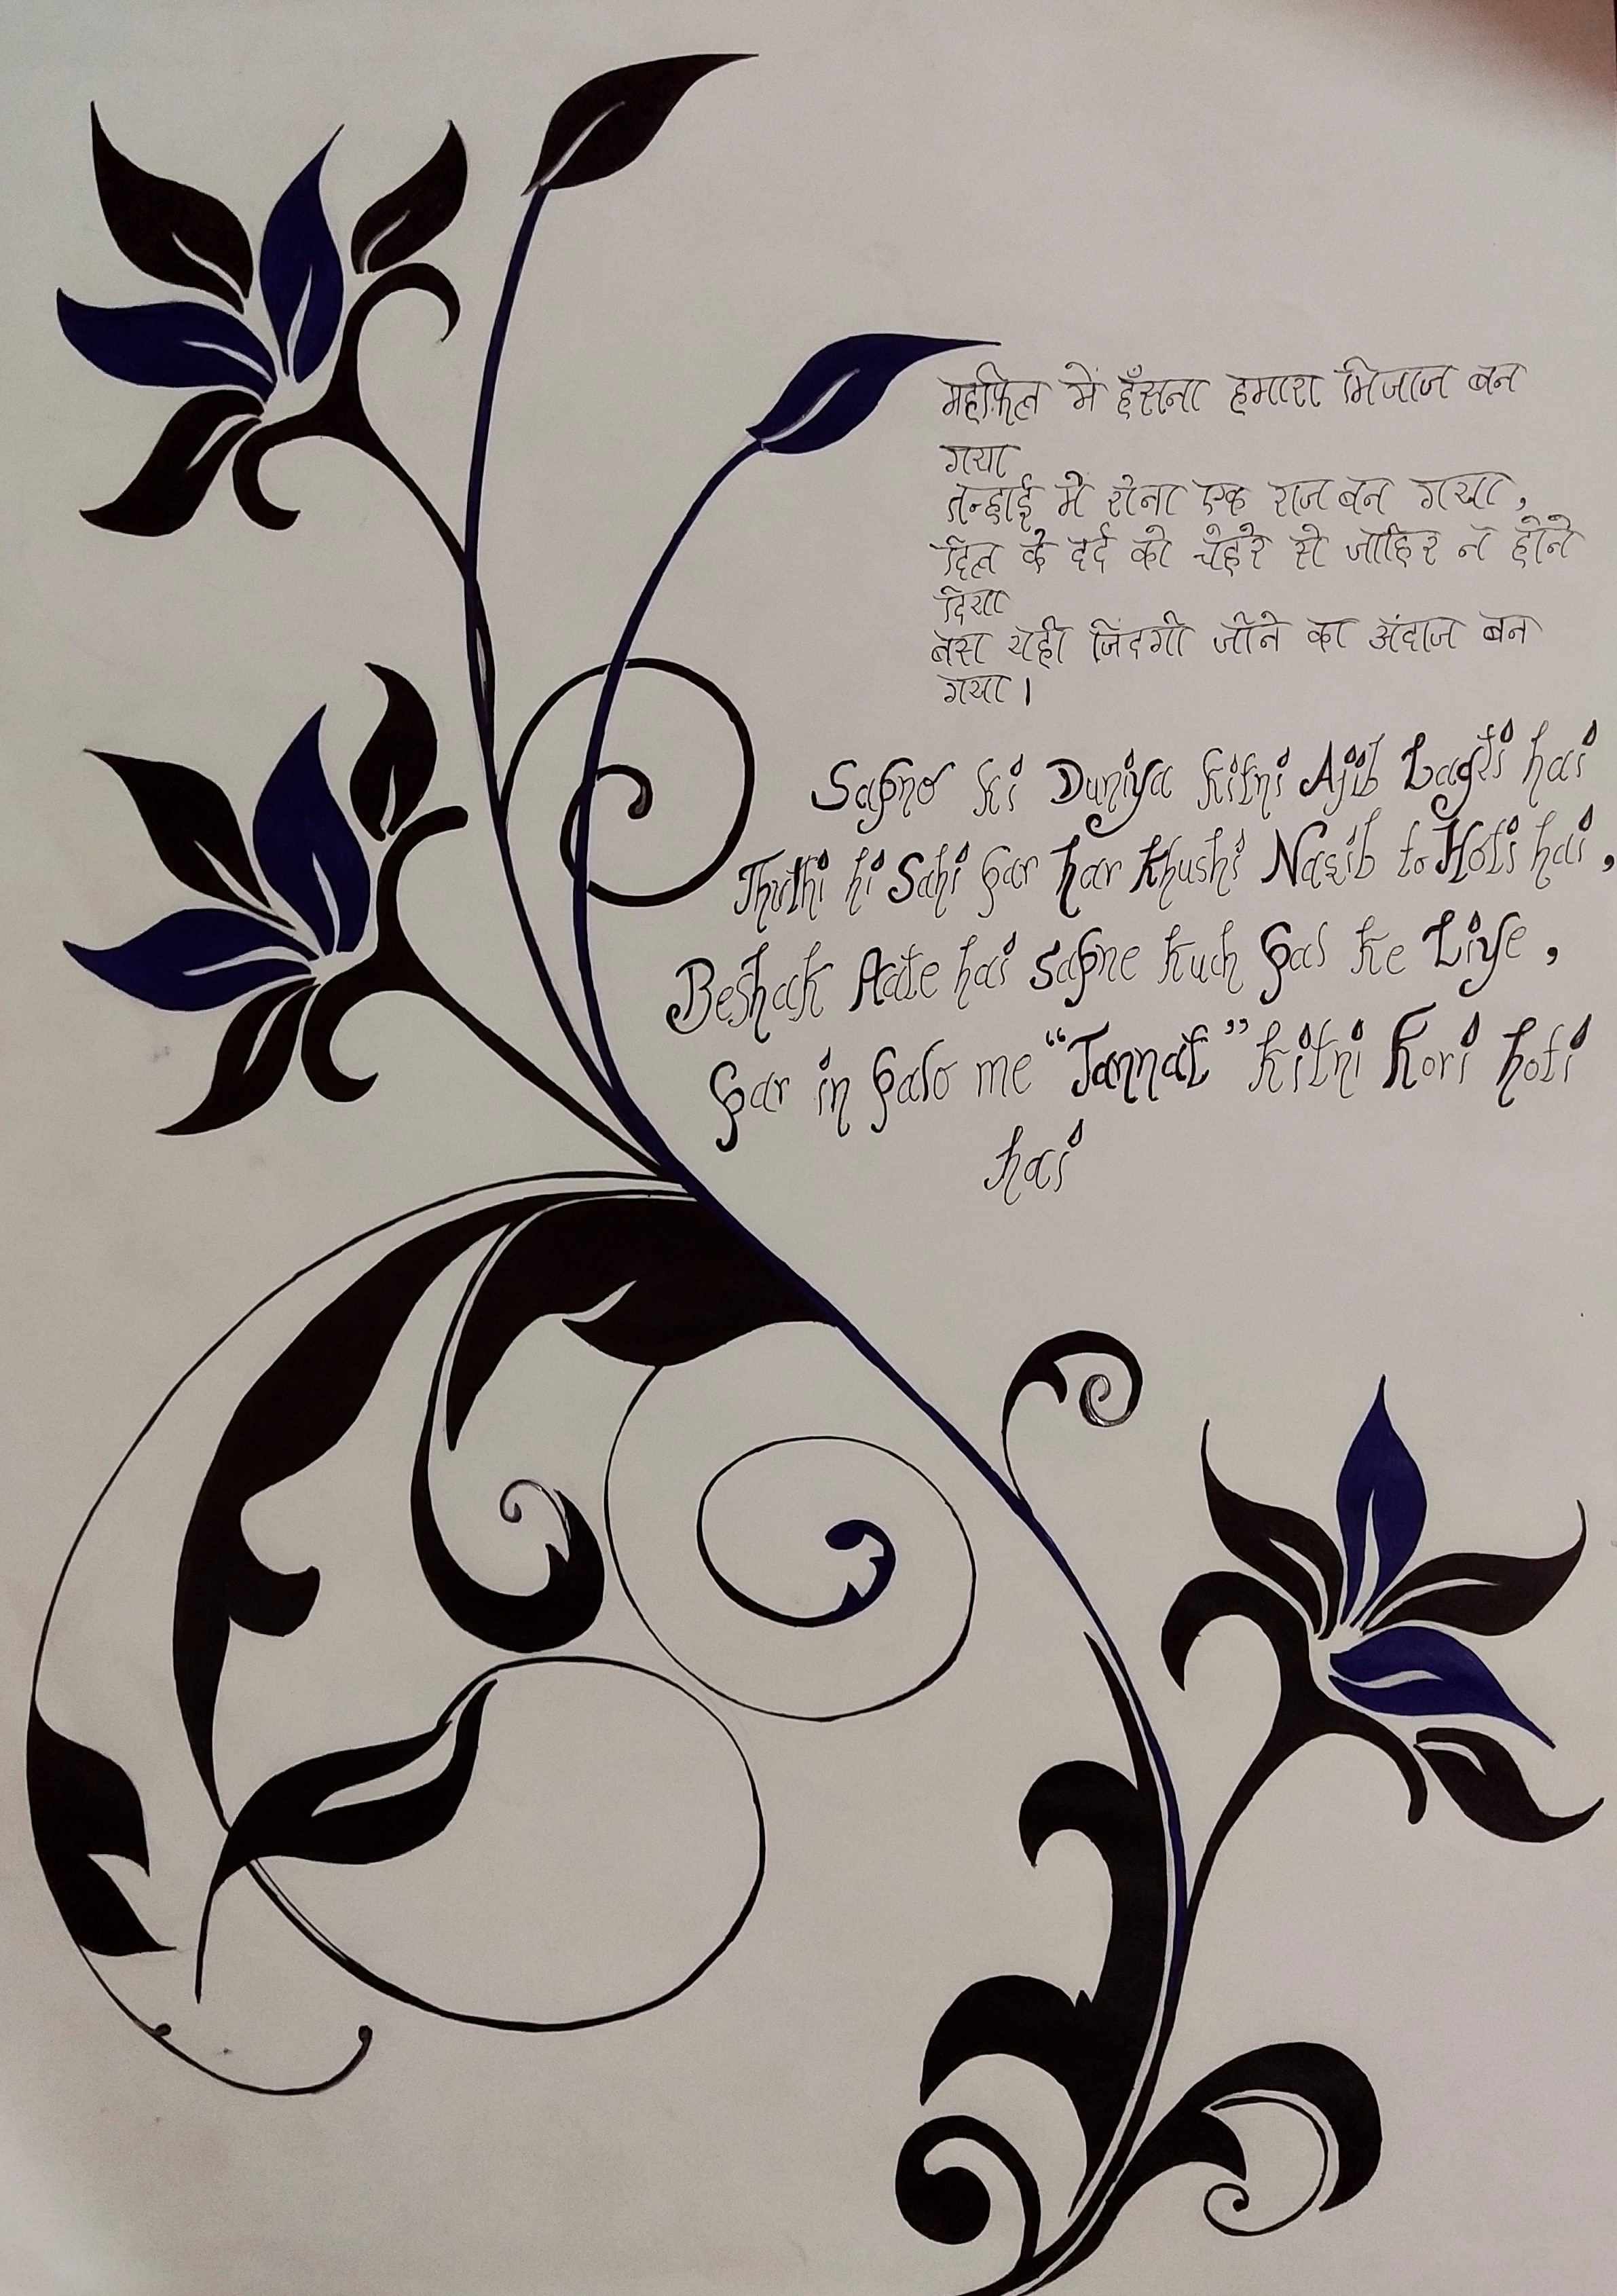 महफ़िल में हँसना हमारा मिजाज बन
गया
तन्हाई में रोना एक राज बन गया,
दिल के दर्द को चेहरे से जाहिर न होने
दिया
बस यही जिंदगी जीने का अंदाज बन
गया।
Sapno ki Duniya kitni Ajib Lagti hai
Jhuthi hi Sahi par har khushi Nasib to Hoti hai,
Beshak Aate hai sapne kuch pal ke Liye,
par in palo me “Jannat” kitni Kori hoti
hai